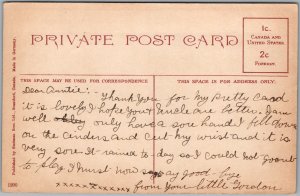 PRIVATE POST CARD
1c.
CANADA AND
UNITED STATES
2c
FOREIGN.
THIS SPACE MAY BE USED FOR CORRESPONDENCE
THIS SPACE IS FOR ADDRESS ONLY.
Dear Auntie:- Thank You for My Pretty Card
it is lovely I hope your Uncle are better I am
well only have a sore hand I fell down
on the cinders and cut my wrist and it is
very sore. It rained to-day so I could not go out
to play I must now say good bye
xxxxxxxxxx from your little Gordon
1990